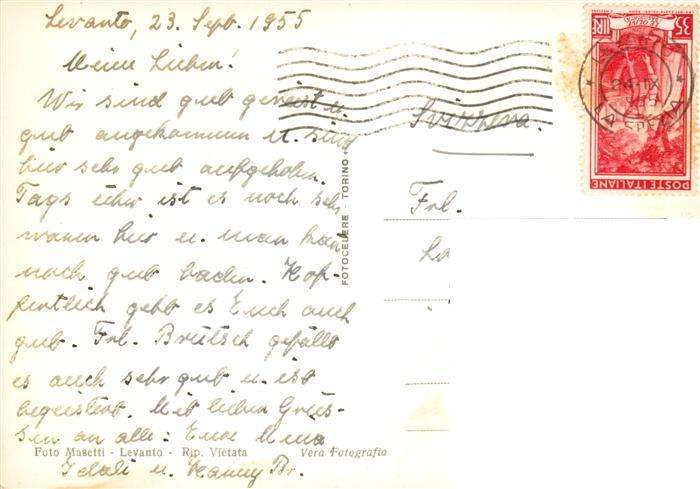 Levanto, 23. Sept. 1955
Meine Lieben!
Wir sind gut gereist u.
gut angekommen u. sind
hier sehr gut aufgehoben.
Tags über ist es noch sehr
warm hier u. man kann
noch gut baden. Hof-
fentlich geht es Euch auch
gut. Frl. Brütsch gefällt
es auch sehr gut u. ist
begeistert. Mit lieben Grüs-
sen an alle: Eure
u. Br.
Foto Masetti - Levanto - Rip. Vietata
Vera Fotografia
FOTOCELERE - TORINO
Svizzera.
Frl.
LIRE 35
POSTE ITALIANE
LA SPEZIA